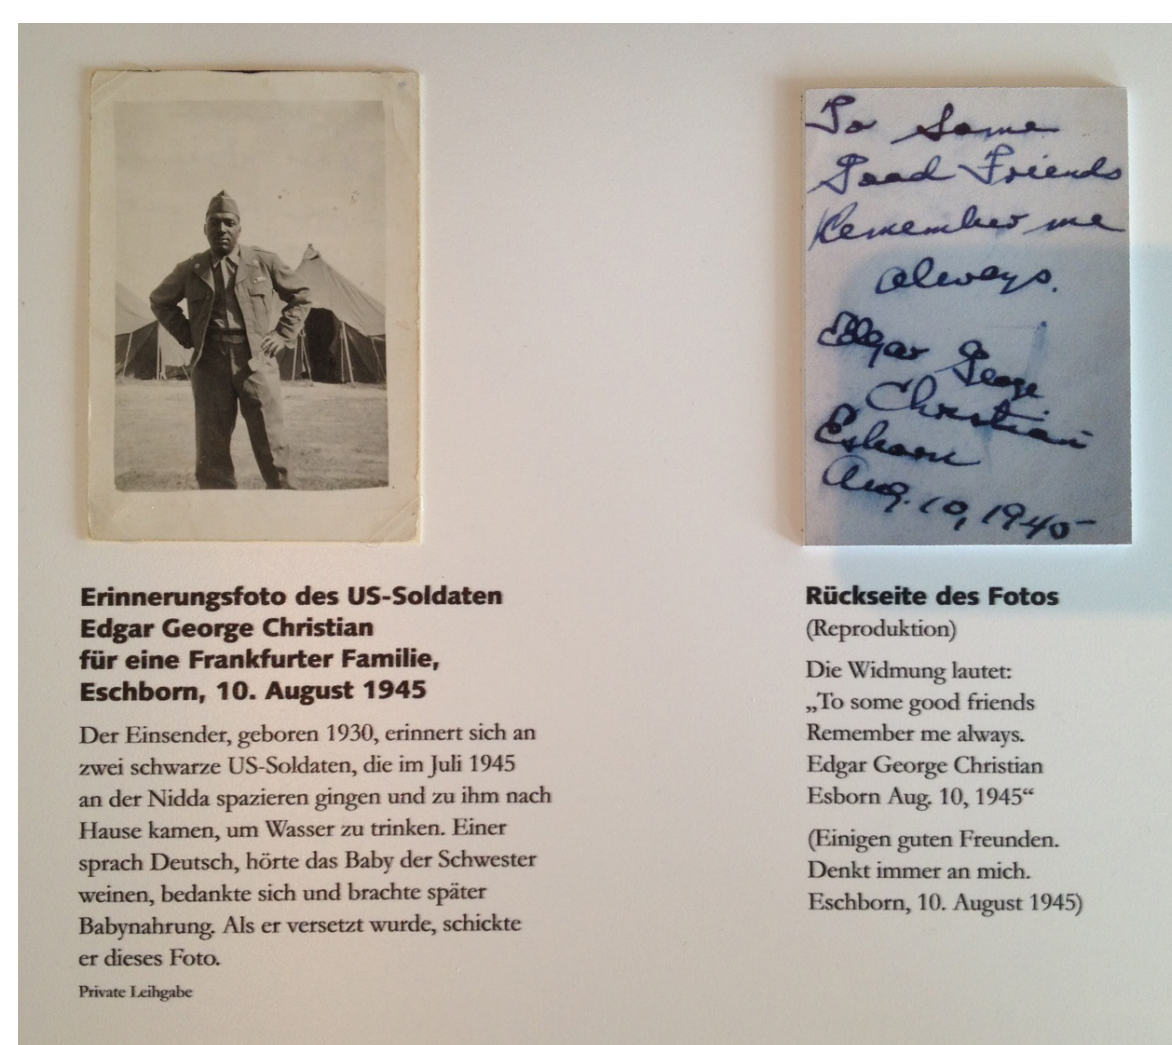 To Some
Good Friends
Remember me
always.
Edgar George
Christian
Esborn
Aug. 10, 1945
Erinnerungsfoto des US-Soldaten
Edgar George Christian
für eine Frankfurter Familie,
Eschborn, 10. August 1945
Der Einsender, geboren 1930, erinnert sich an
zwei schwarze US-Soldaten, die im Juli 1945
an der Nidda spazieren gingen und zu ihm nach
Hause kamen, um Wasser zu trinken. Einer
sprach Deutsch, hörte das Baby der Schwester
weinen, bedankte sich und brachte später
Babynahrung. Als er versetzt wurde, schickte
er dieses Foto.
Private Leihgabe
Rückseite des Fotos
(Reproduktion)
Die Widmung lautet:
„To some good friends
Remember me always.
Edgar George Christian
Esborn Aug. 10, 1945“
(Einigen guten Freunden.
Denkt immer an mich.
Eschborn, 10. August 1945)